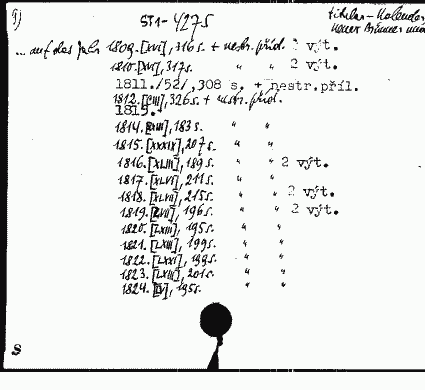 9) ST1-427S titular-Kalender
neuer Brünner
... auf das Jahr 1809. [XVI], 316 s. + nestr. příl. 2 výt.
1810. [XVI], 317 s. " " 2 výt.
1811./52/,308 s. + nestr.příl.
1812. [CIII], 326 s. + nestr. příl.
1813.
1814. 183 s. " "
1815. [XXXIX], 207 s. " "
1816. [XLIII], 189 s. " " 2 výt.
1817. [XLVI], 211 s. " "
1818. [XLVII], 215 s. " " 2 výt.
1819. 196 s. " " 2 výt.
1820. [LXIII], 195 s. " "
1821. [LXIII], 199 s. " "
1822. [LXXI], 199 s. " "
1823. [LXII], 201 s. " "
1824. [LV], 195 s. " "
S